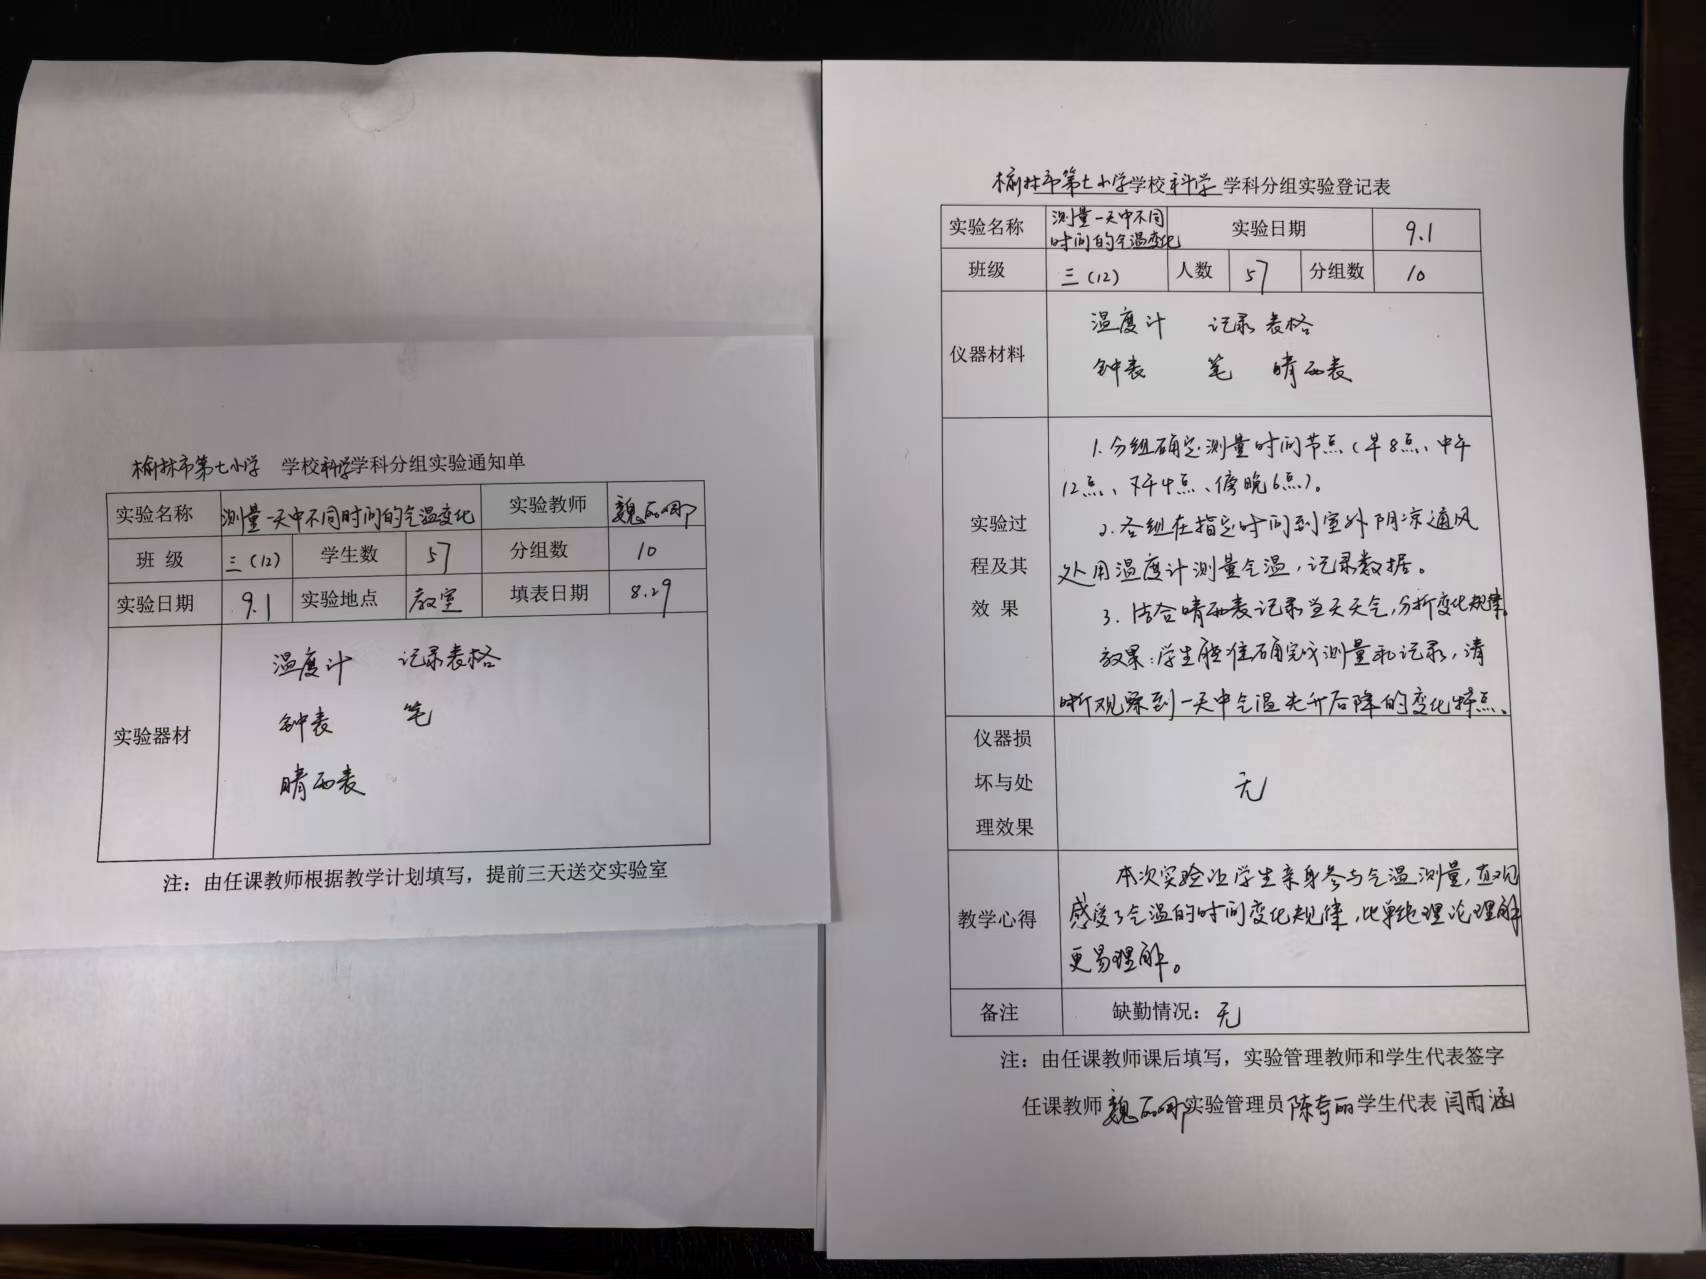 榆林市第七小学 学校科学学科分组实验通知单
实验名称 测量一天中不同时间的气温变化 实验教师 魏丽娜
班 级 三(12) 学生数 57 分组数 10
实验日期 9.1 实验地点 教室 填表日期 8.29
实验器材
温度计 记录表格
钟表 笔
晴雨表
注：由任课教师根据教学计划填写，提前三天送交实验室
榆林市第七小学学校科学 学科分组实验登记表
实验名称 测量一天中不同时间的气温变化 实验日期 9.1
班级 三(12) 人数 57 分组数 10
仪器材料
温度计 记录表格
钟表 笔 晴雨表
实验过程及其效果
1.分组确定测量时间节点(早8点、中午
12点、下午4点、傍晚6点)。
2.各组在指定时间到室外阴凉通风
处用温度计测量气温，记录数据。
3.结合晴雨表记录当天天气，分析变化规律。
效果：学生能准确完成测量和记录，清
晰观察到一天中气温先升后降的变化特点。
仪器损坏与处理效果 无
教学心得
本次实验让学生亲身参与气温测量，直观
感受了气温的时间变化规律，比单纯理论理解
更易理解。
备注 缺勤情况：无
注：由任课教师课后填写，实验管理教师和学生代表签字
任课教师 魏丽娜 实验管理员 陈奇丽 学生代表 闫雨涵